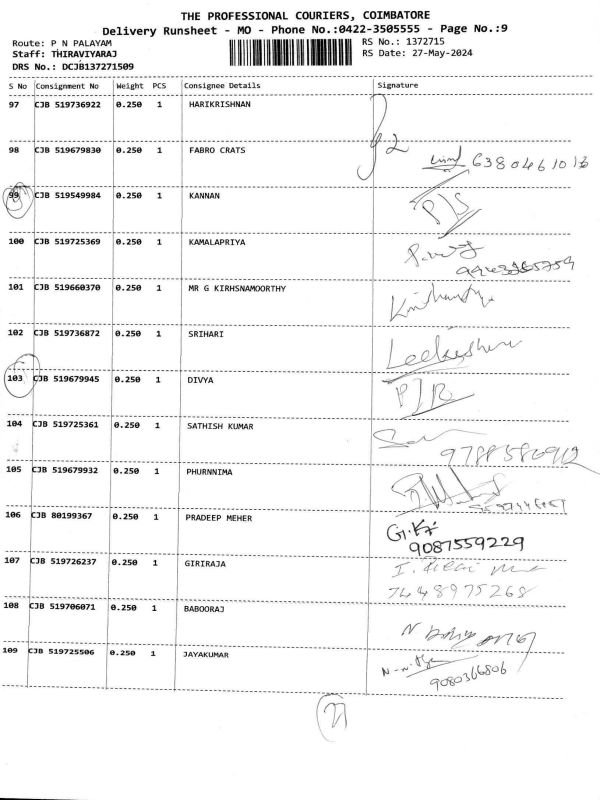 THE PROFESSIONAL COURIERS, COIMBATORE
Delivery Runsheet - MO - Phone No.:0422-3505555 - Page No.:9
Route: P N PALAYAM
RS No.: 1372715
Staff: THIRAVIYARAJ
RS Date: 27-May-2024
DRS No.: DCJB137271509
S No Consignment No Weight PCS Consignee Details Signature
97 CJB 519736922 0.250 1 HARIKRISHNAN
98 CJB 519679830 0.250 1 FABRO CRATS
6380461013
99 CJB 519549984 0.250 1 KANNAN
100 CJB 519725369 0.250 1 KAMALAPRIYA
101 CJB 519660370 0.250 1 MR G KIRHSNAMOORTHY
102 CJB 519736872 0.250 1 SRIHARI
103 CJB 519679945 0.250 1 DIVYA
104 CJB 519725361 0.250 1 SATHISH KUMAR
105 CJB 519679932 0.250 1 PHURNNIMA
106 CJB 80199367 0.250 1 PRADEEP MEHER
9087559229
107 CJB 519726237 0.250 1 GIRIRAJA
7448975268
108 CJB 519706071 0.250 1 BABOORAJ
109 CJB 519725506 0.250 1 JAYAKUMAR
9080366806